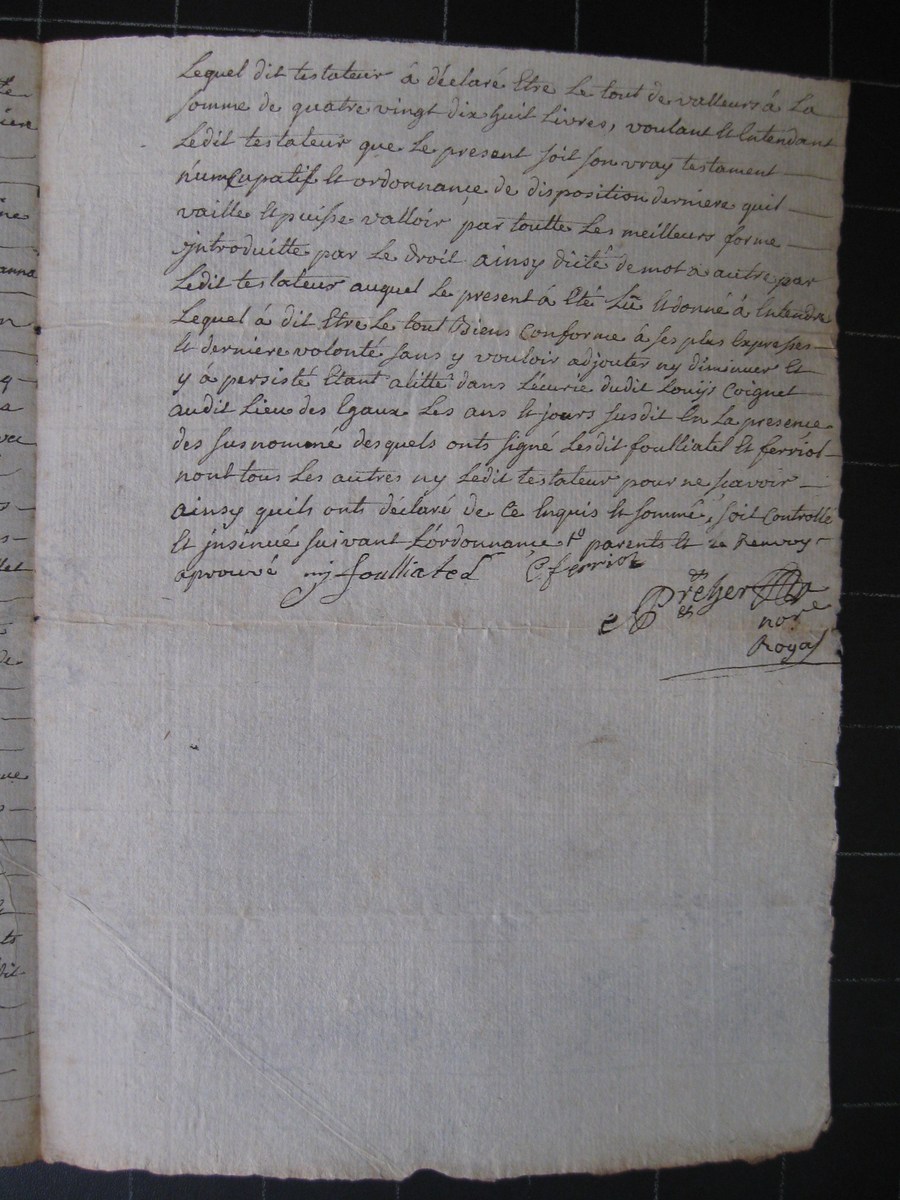 Lequel dit testateur á déclaré Etre Le tout de valleurs á La
somme de quatre vingt dix huit Livres, voulant et Entendant
Ledit testateur que Le present soit son vray testament
numcupatif Et ordonnance de disposition derniere quil
vaille Et puisse valloir par toutte Les meilleurs forme
introduitte par Le droit ainsy dicté de mot a autre par
Ledit testateur auquel Le present á Eté Lü Et donné á Entendre
Lequel á dit Etre Le tout Biens Conforme á ses plus Expresses
Et derniere volonté sans y vouloir adjouter ny diminuer Et
y á persisté Etant alitté dans L'écurie dudit Louys Coignet
audit Lieu des Egaux Les ans Et jours susdit En La presence
des susnommé desquels onts signé Lesdit foulliatel Et ferriol
nont tous Les autres ny Ledit testateur pour ne scavoir
ainsy quils onts déclaré de Ce Enquis Et sommé, soit Controllé
Et insinué suivant L'ordonnance parents Et Renvoy
aprouvé foulliatel C ferriol
nore
Royal